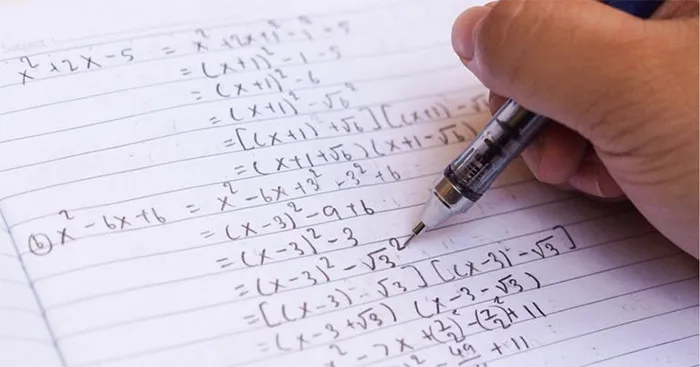 x² + 2x - 5 = x² + 2x + 1² - 1² - 5
= (x+1)² - 1 - 5
= (x+1)² - 6
= (x+1)² - √6²
= [(x+1) + √6] [(x+1) - √
= (x+1+√6) (x+1-√6)
(b) x² - 6x + 6 = x² - 6x + 3² - 3² + 6
= (x-3)² - 9 + 6
= (x-3)² - 3
= (x-3)² - √3²
= [(x-3) - √3] [(x-3) - √3]
= (x-3+√3) (x-3-√3)
² - 7x + (7/2)² - (7/2)² + 11
² - 49 + 11